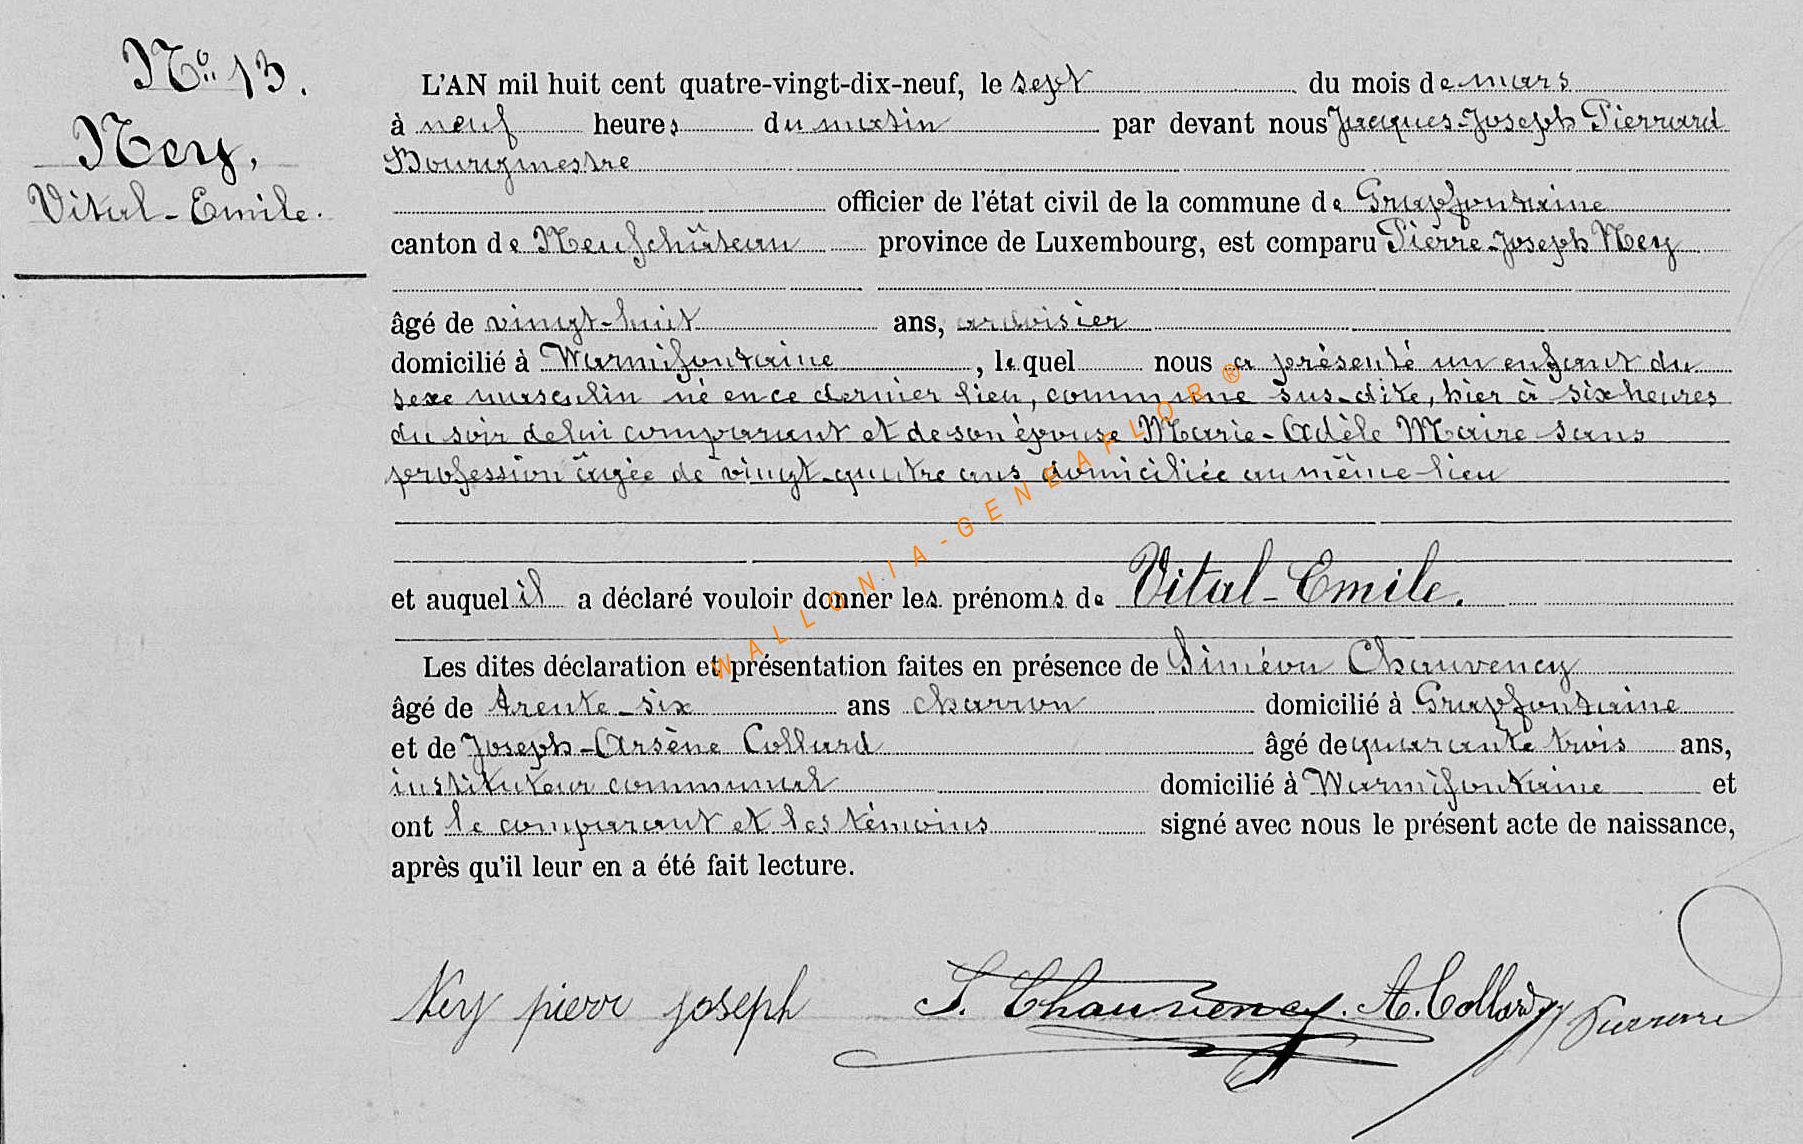 N° 13.
Ney,
Vital-Emile.
L'AN mil huit cent quatre-vingt-dix-neuf, le sept du mois de mars
à neuf heures du matin par devant nous Jacques-Joseph Pierrard
Bourgmestre
officier de l'état civil de la commune de Grapfontaine
canton de Neufchâteau province de Luxembourg, est comparu Pierre-Joseph Ney
âgé de vingt-huit ans, ardoisier
domicilié à Warmifontaine, lequel nous a présenté un enfant du
sexe masculin né en ce dernier lieu, commune sus-dite, hier à six heures
du soir de lui comparant et de son épouse Marie-Adèle Maire sans
profession âgée de vingt-quatre ans domiciliée au même lieu
et auquel il a déclaré vouloir donner les prénoms de Vital-Emile.
Les dites déclaration et présentation faites en présence de Siméon Chauvency
âgé de trente-six ans charron domicilié à Grapfontaine
et de Joseph-Arsène Collard âgé de quarante trois ans,
instituteur communal domicilié à Warmifontaine et
ont le comparant et les témoins signé avec nous le présent acte de naissance,
après qu'il leur en a été fait lecture.
Ney pierre joseph S. Chauvency. A. Collard Pierrard
WALLONIA-GENEAFLOR®